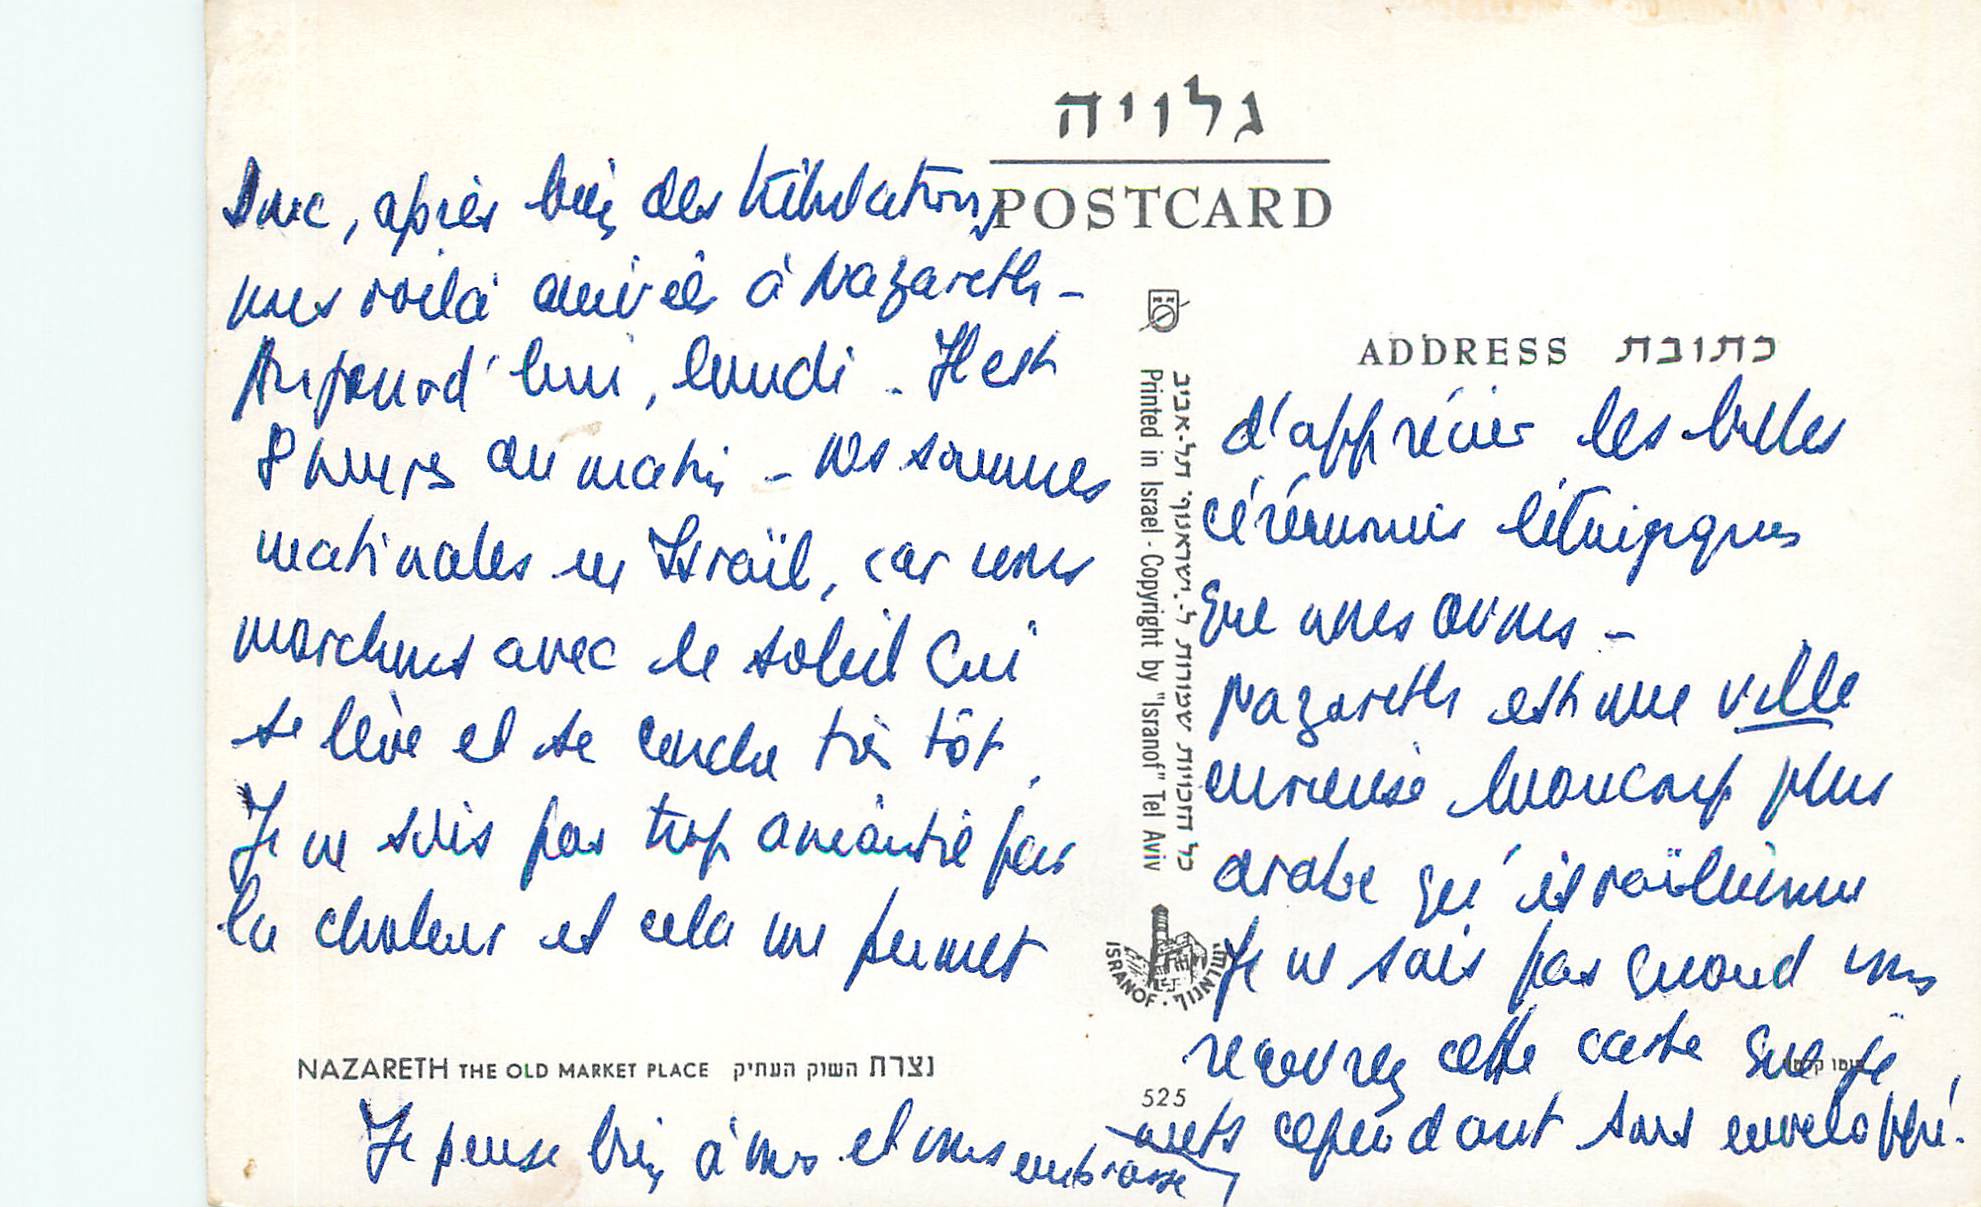 גלויה
POSTCARD
Donc, après bien des tribulations,
nous voilà arrivés à Nazareth -
Aujourd'hui, lundi - Il est
8 heures du matin - nos sommes
matinales en Israïl, car nous
marchons avec le soleil qui
se lève et se couche très tôt,
Je ne suis pas trop anéantie par
la chaleur et cela me permet
ADDRESS כתובת
d'apprécier les belles
cérémonies liturgiques
que nous avons -
Nazareth est une ville
curieuse beaucoup plus
arabe qu'israïlienne
Je ne sais pas quand vous
recevrez cette carte que je
mets cependant sous enveloppe.
Je pense bien à vous et vous embrasse
כל הזכויות שמורות ל-"ישראנוף" תל-אביב
Printed in Israel - Copyright by "Isranof" Tel Aviv
ISRANOF · ישראנוף
NAZARETH THE OLD MARKET PLACE נצרת השוק העתיק
525